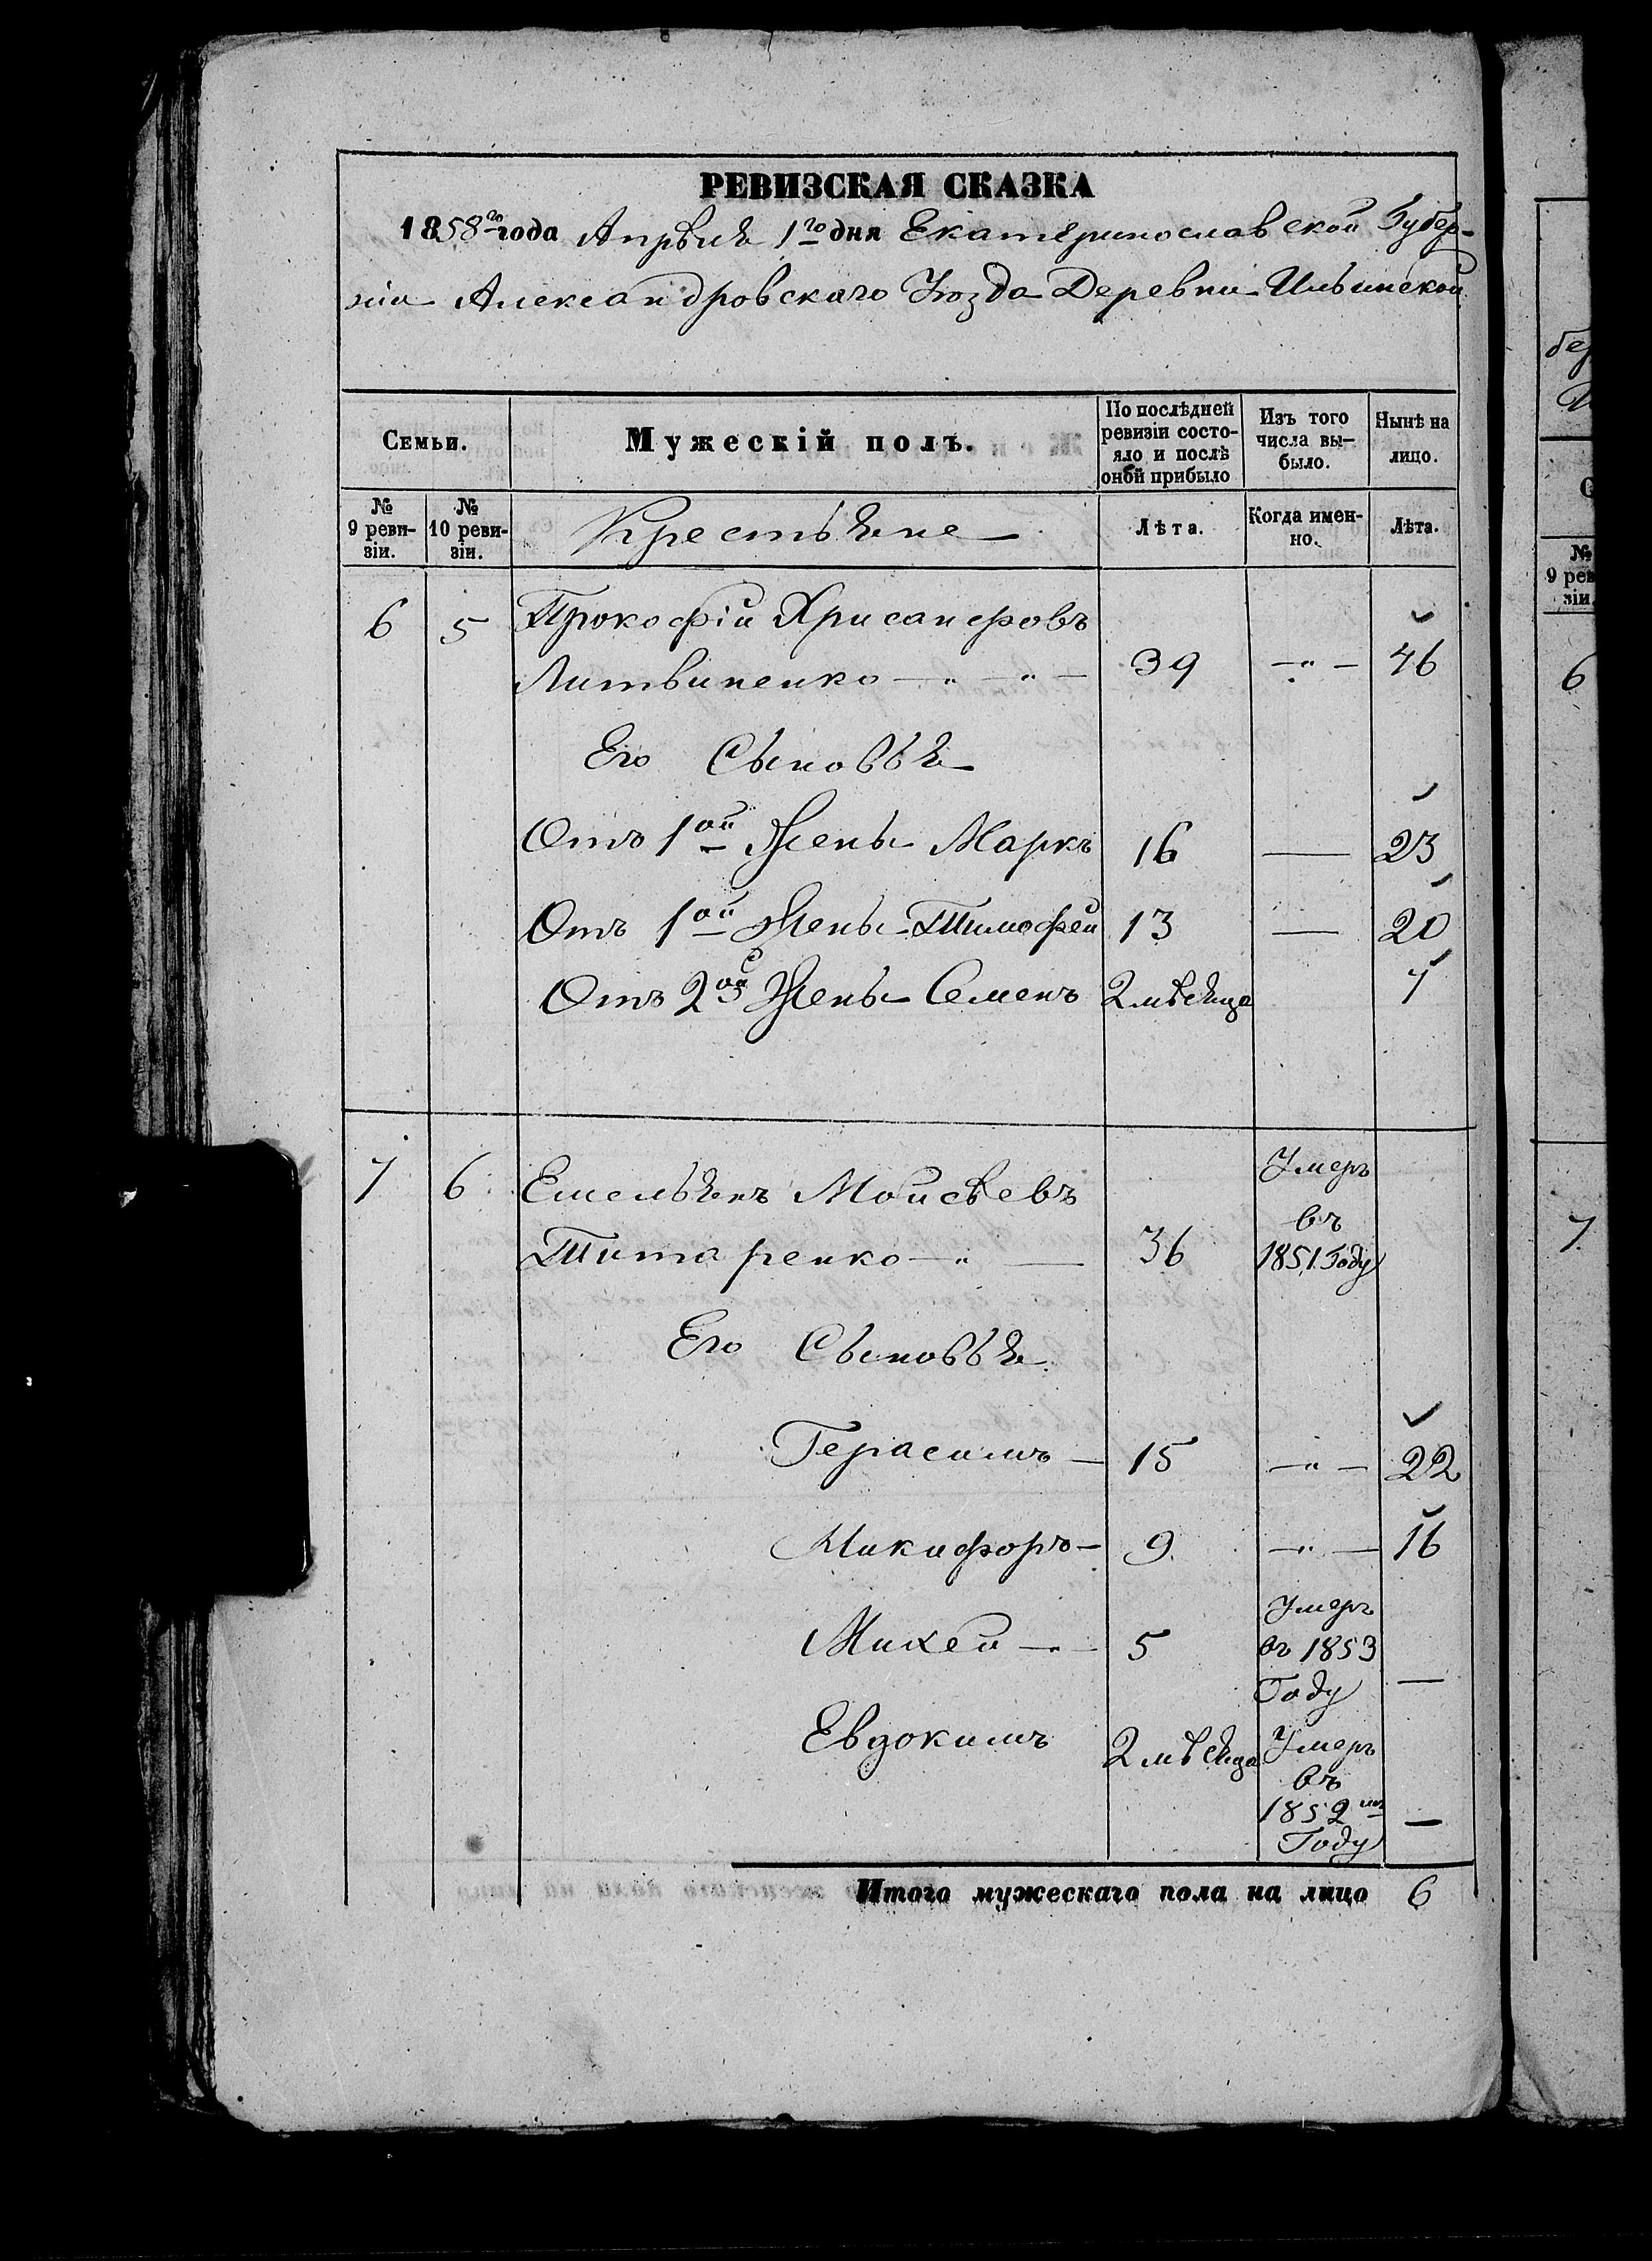 РЕВИЗСКАЯ СКАЗКА
1858го года Апрѣля 1го дня Екатеринославской Губер-
ніи Александровскаго Уѣзда Деревни Ильинской
Семьи.
Мужескій полъ.
По послѣдней ревизіи состо-яло и послѣ оной прибыло
Изъ того числа вы-было.
Нынѣ на лицо.
№ 9 реви-зіи.
№ 10 реви-зіи.
Крестьяне
Лѣта.
Когда имен-но.
Лѣта.
6 5 Прокофій Хрисанфовъ
Литвиненко 39 — " — 46
Его Сыновья
Отъ 1ой Жены Маркъ 16 — 23
Отъ 1ой Жены Тимофей 13 — 20
Отъ 2ой Жены Семенъ 2 мѣсяца 7
7 6 Емельянъ Моисѣевъ
Титаренко 36 Умеръ въ 1851 Году
Его Сыновья
Герасимъ 15 — " — 22
Никифоръ 9 — " — 16
Михей 5 Умеръ въ 1853 Году —
Евдокимъ 2 мѣсяца Умеръ въ 1852мъ Году —
Итого мужескаго пола на лицо 6
№ 9 рев зіи.
6
7.